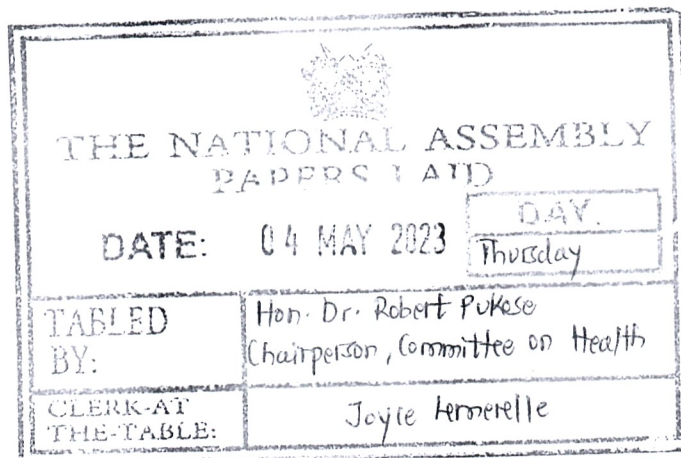 THE NATIONAL ASSEMBLY
PAPERS LAID
DATE: 04 MAY 2023
DAY.
Thursday
TABLED
BY:
Hon. Dr. Robert Pukose
Chairperson, Committee on Health
CLERK-AT
THE-TABLE:
Joyce